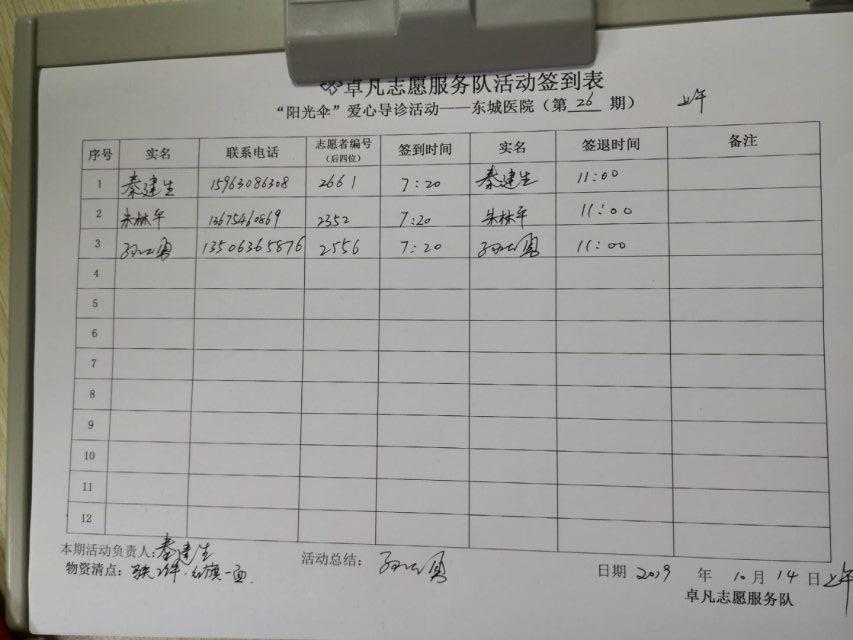 卓凡志愿服务队活动签到表
“阳光伞”爱心导诊活动——东城医院（第 26 期） 上午
序号 实名 联系电话 志愿者编号（后四位） 签到时间 实名 签退时间 备注
1 秦建生 15963086308 2661 7:20 秦建生 11:00
2 朱林平 13675460869 2352 7:20 朱林平 11:00
3 13506365876 2556 7:20 11:00
4
5
6
7
8
9
10
11
12
本期活动负责人：秦建生 活动总结：
物资清点： 红旗一面. 日期 2019 年 10 月 14 日上午
卓凡志愿服务队